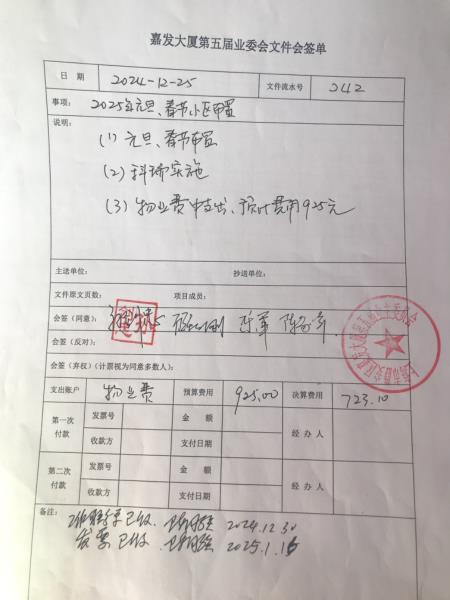 嘉发大厦第五届业委会文件会签单
日 期 2024-12-25 文件流水号 242
事项: 2025年元旦、春节小区布置
说明:
(1) 元旦、春节布置
(2) 科瑞实施
(3) 物业费中支出、预计费用925元
主送单位: 抄送单位:
文件原文页数: 项目成员:
会签(同意):
会签(反对):
会签(弃权)(计票视为同意多数人):
支出账户 物业费 预算费用 925.00 决算费用 723.10
第一次付款 发票号 金 额 经 办 人
收款方 支付日期
第二次付款 发票号 金 额 经 办 人
收款方 支付日期
备注:
已收 2024.12.30
发票已收 2025.1.16